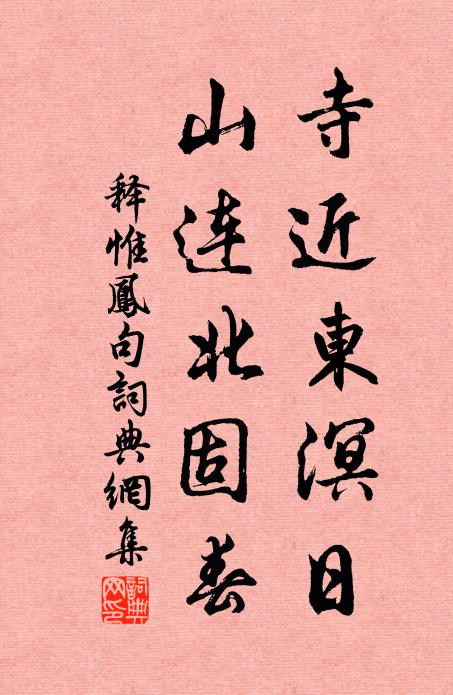 寺近東溟日
山连北固春
释惟鳳句詞典網集
詞典网印